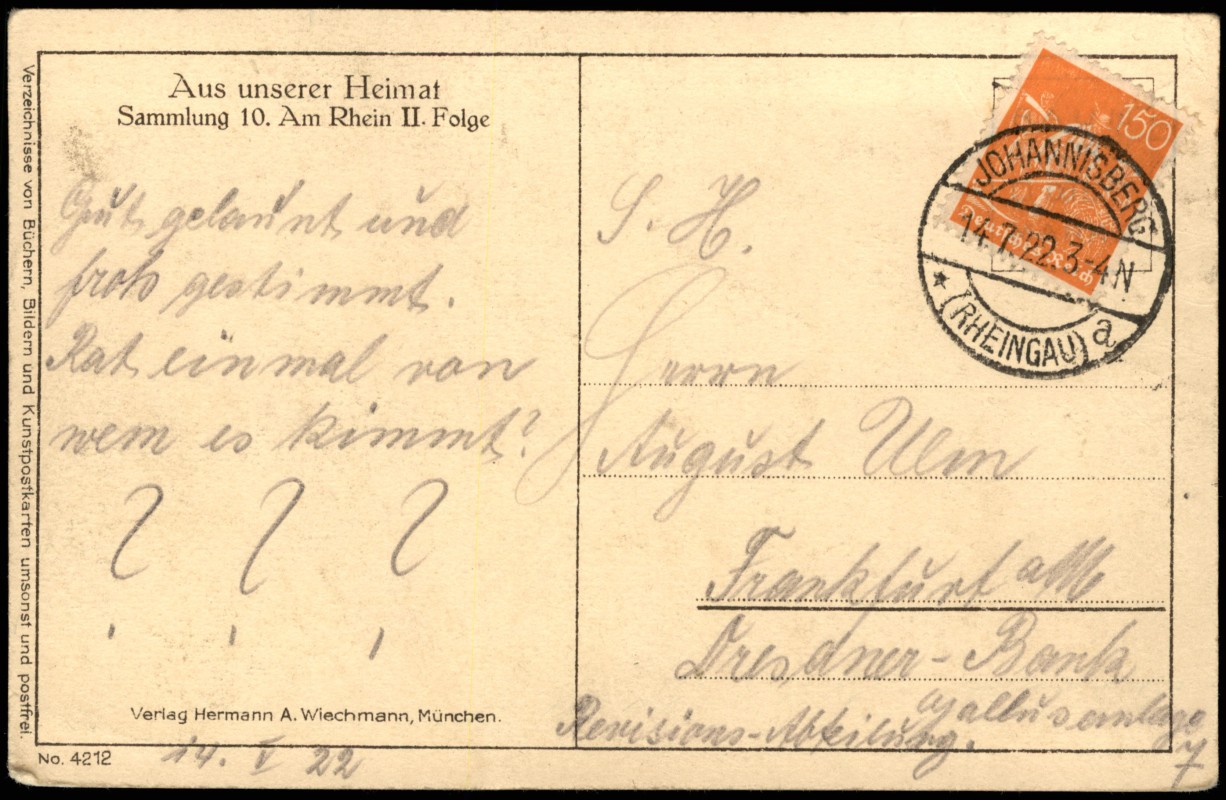 Aus unserer Heimat
Sammlung 10. Am Rhein II. Folge
Verzeichnisse von Büchern, Bildern und Kunstpostkarten umsonst und postfrei.
Gut gelaunt und
froh gestimmt.
Rat einmal von
wem es kimmt?
? ? ?
Verlag Hermann A. Wiechmann, München.
No. 4212
14. V 22
150
Deutsches Reich
JOHANNISBERG
14.7.22.3-4N
* (RHEINGAU) a
S. H.
Herrn
August Ulm
Frankfurt a/M
Dresdner-Bank
Gallusanlage
Revisions-Abteilung.
7